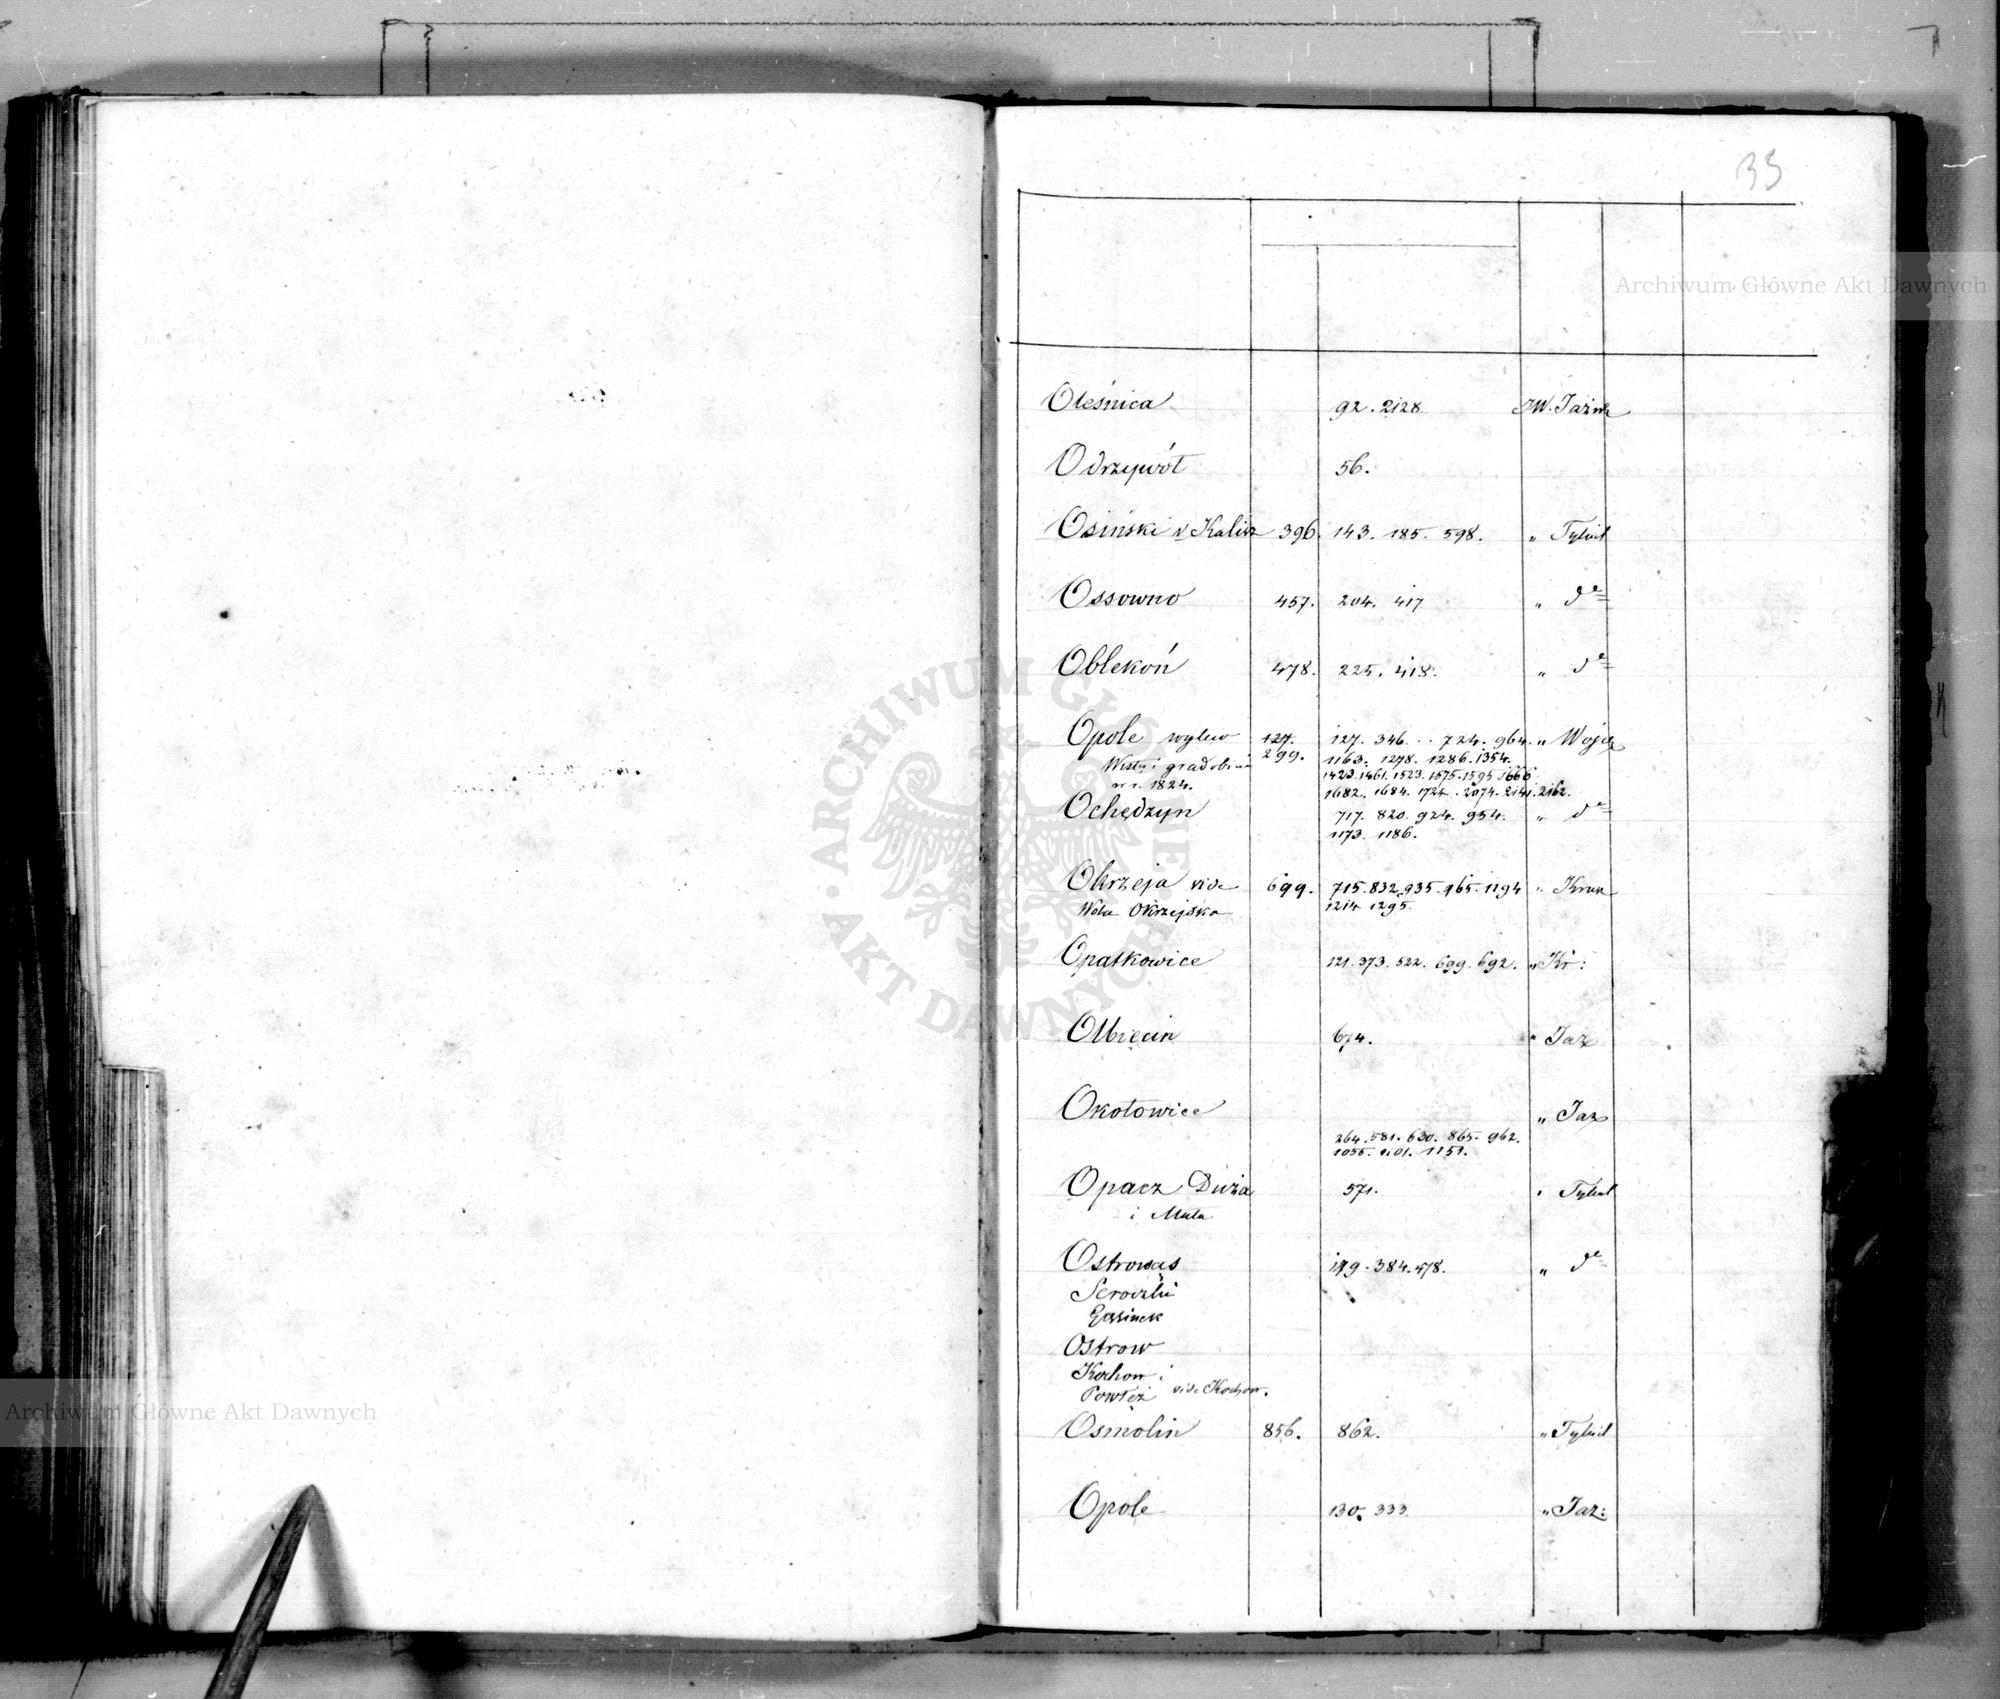 35
Archiwum Główne Akt Dawnych
Oleśnica 92. 2128 JW. Jaźw
Odrzywół 56.
Osiński w Kalisz 396. 143. 185. 598. „ Tykiel
Ossowno 457. 204. 417 „ do
Oblekoń 478. 225. 418. „ do
Opole wylew 127. 127. 346. 724. 964. „ Wojc
Wisły i gradobicie 299. 1163. 1278. 1286. 1354.
1423. 1461. 1523. 1575. 1595. 1666
w r. 1824. 1682. 1684. 1724. 2074. 2141. 2162.
Ochędzyn 717. 820. 924. 954. „ do
1173. 1186.
Okrzeja vide 699. 715. 832. 935. 965. 1194 „ Krux
Wola Okrzejska 1214 1295.
Opatkowice 121. 373. 522. 699. 692. „ Kr:
Olbięcin 674. „ Jaz
Okołowice „ Jaz
264. 581. 630. 865. 962.
1055. 1101. 1151.
Opacz Duża 571. „ Tykiel
i Mała
Ostrowąs 149. 384. 478. „ do
Seroczki
Gąsinek
Ostrow
Kochow i
Powłęż vide Kochow.
Osmolin 856. 862. „ Tykiel
Opole 130. 333 „ Jaz:
ARCHIWUM GŁÓWNE AKT DAWNYCH
Archiwum Główne Akt Dawnych